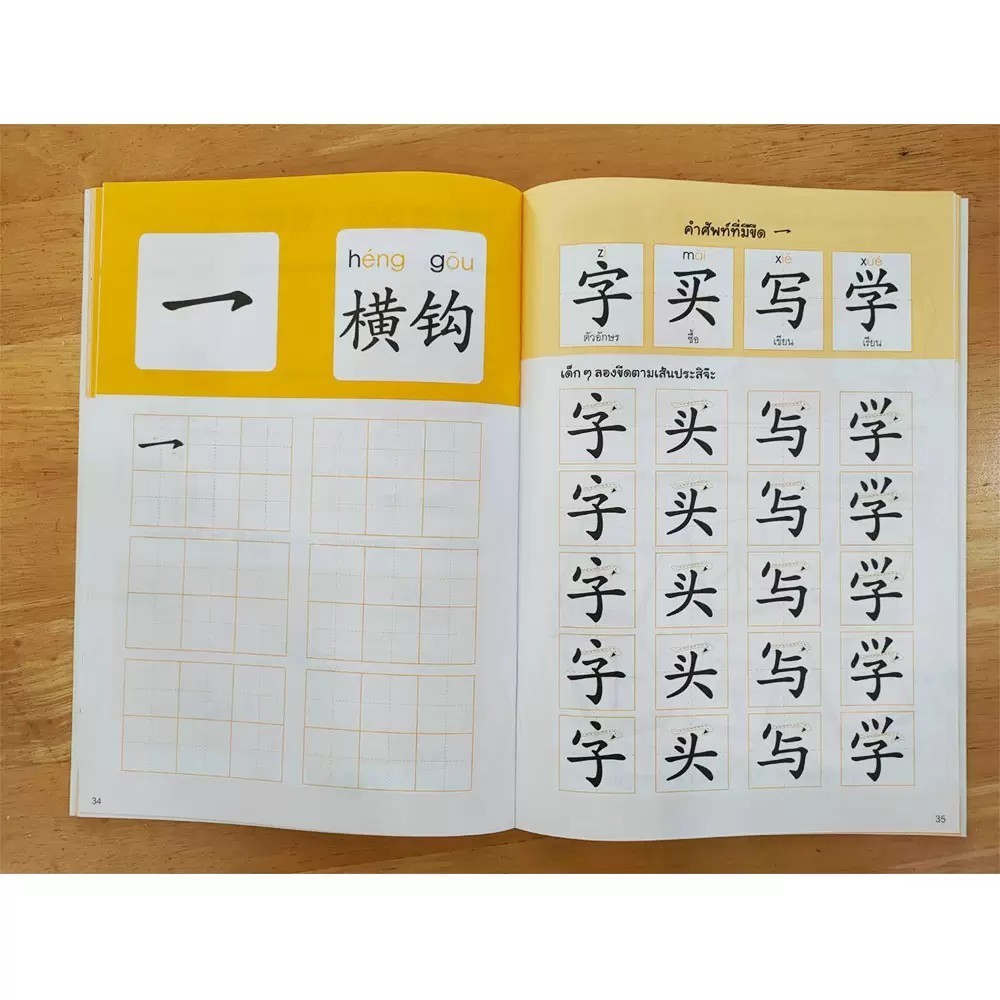 乛
héng gōu
横钩
乛
34
คำศัพท์ที่มีขีด 乛
zì mǎi xiě xué
字 买 写 学
ตัวอักษร ซื้อ เขียน เรียน
เด็ก ๆ ลองขีดตามเส้นประสิจ๊ะ
字 买 写 学
字 买 写 学
字 买 写 学
字 买 写 学
字 买 写 学
35